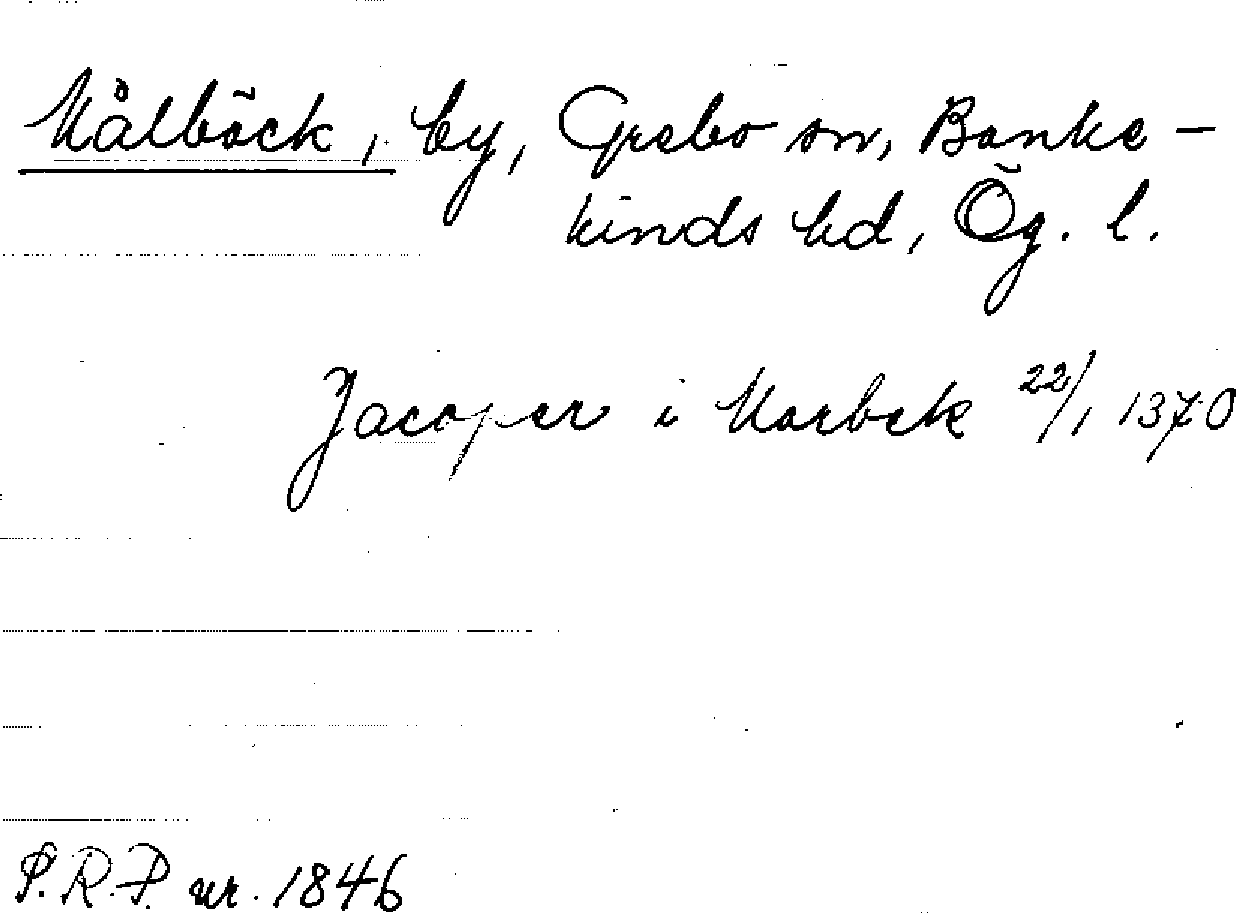 Målbäck, by, Grebo sn, Banke-
kinds hd, Ög. l.
Jacoper i Morbek 22/1 1370
S.R.P. nr. 1846